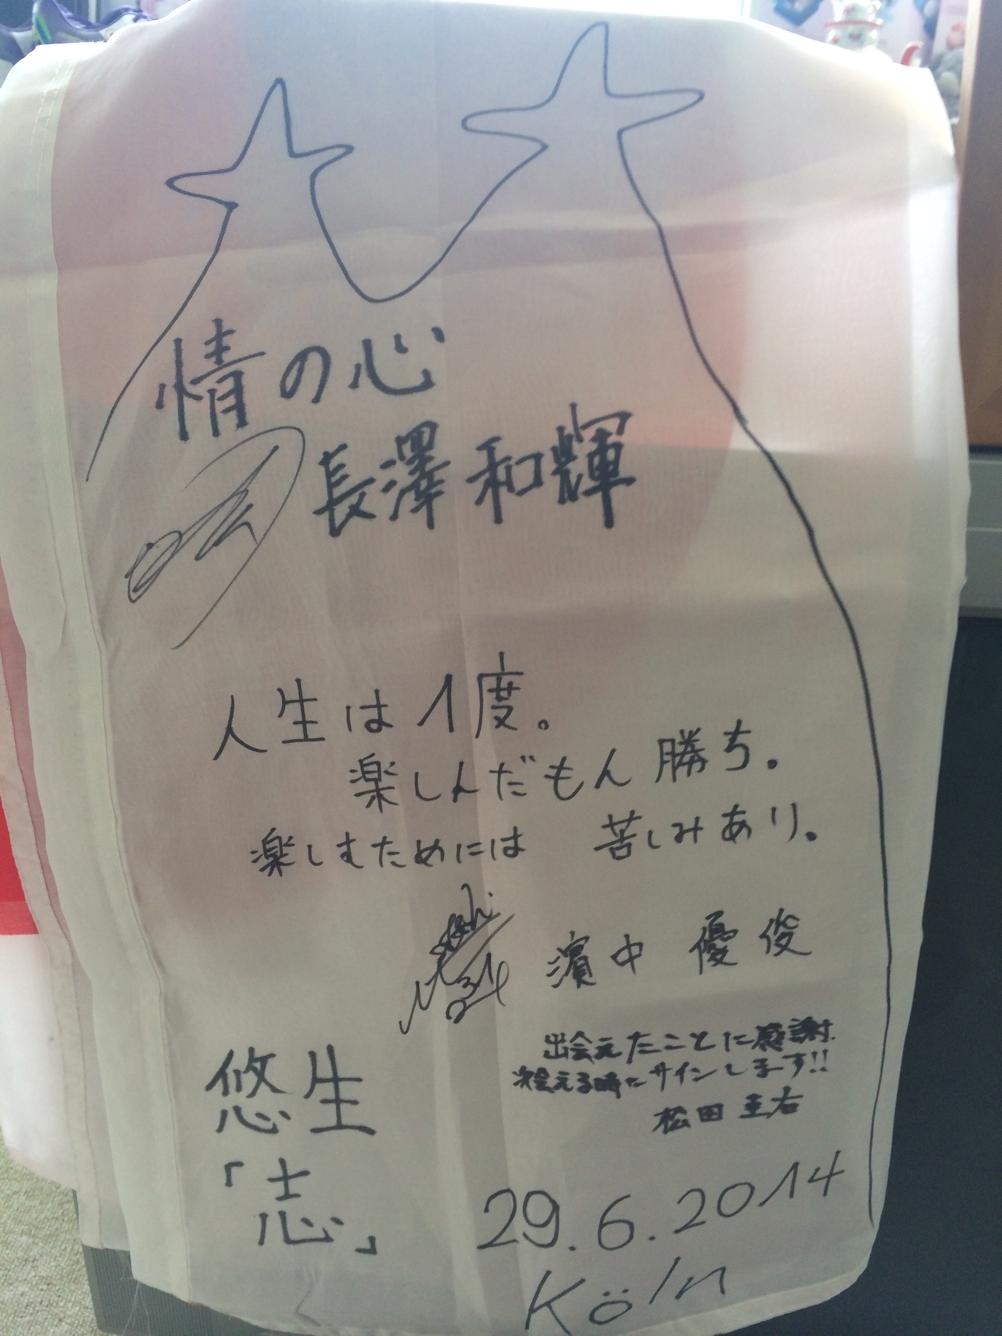 情の心
長澤和輝
人生は1度。
楽しんだもん勝ち。
楽しむためには 苦しみあり。
濱中 優俊
出会えたことに感謝。
次会える時にサインします!!
松田 圭右
悠生
「志」
29.6.2014
Köln